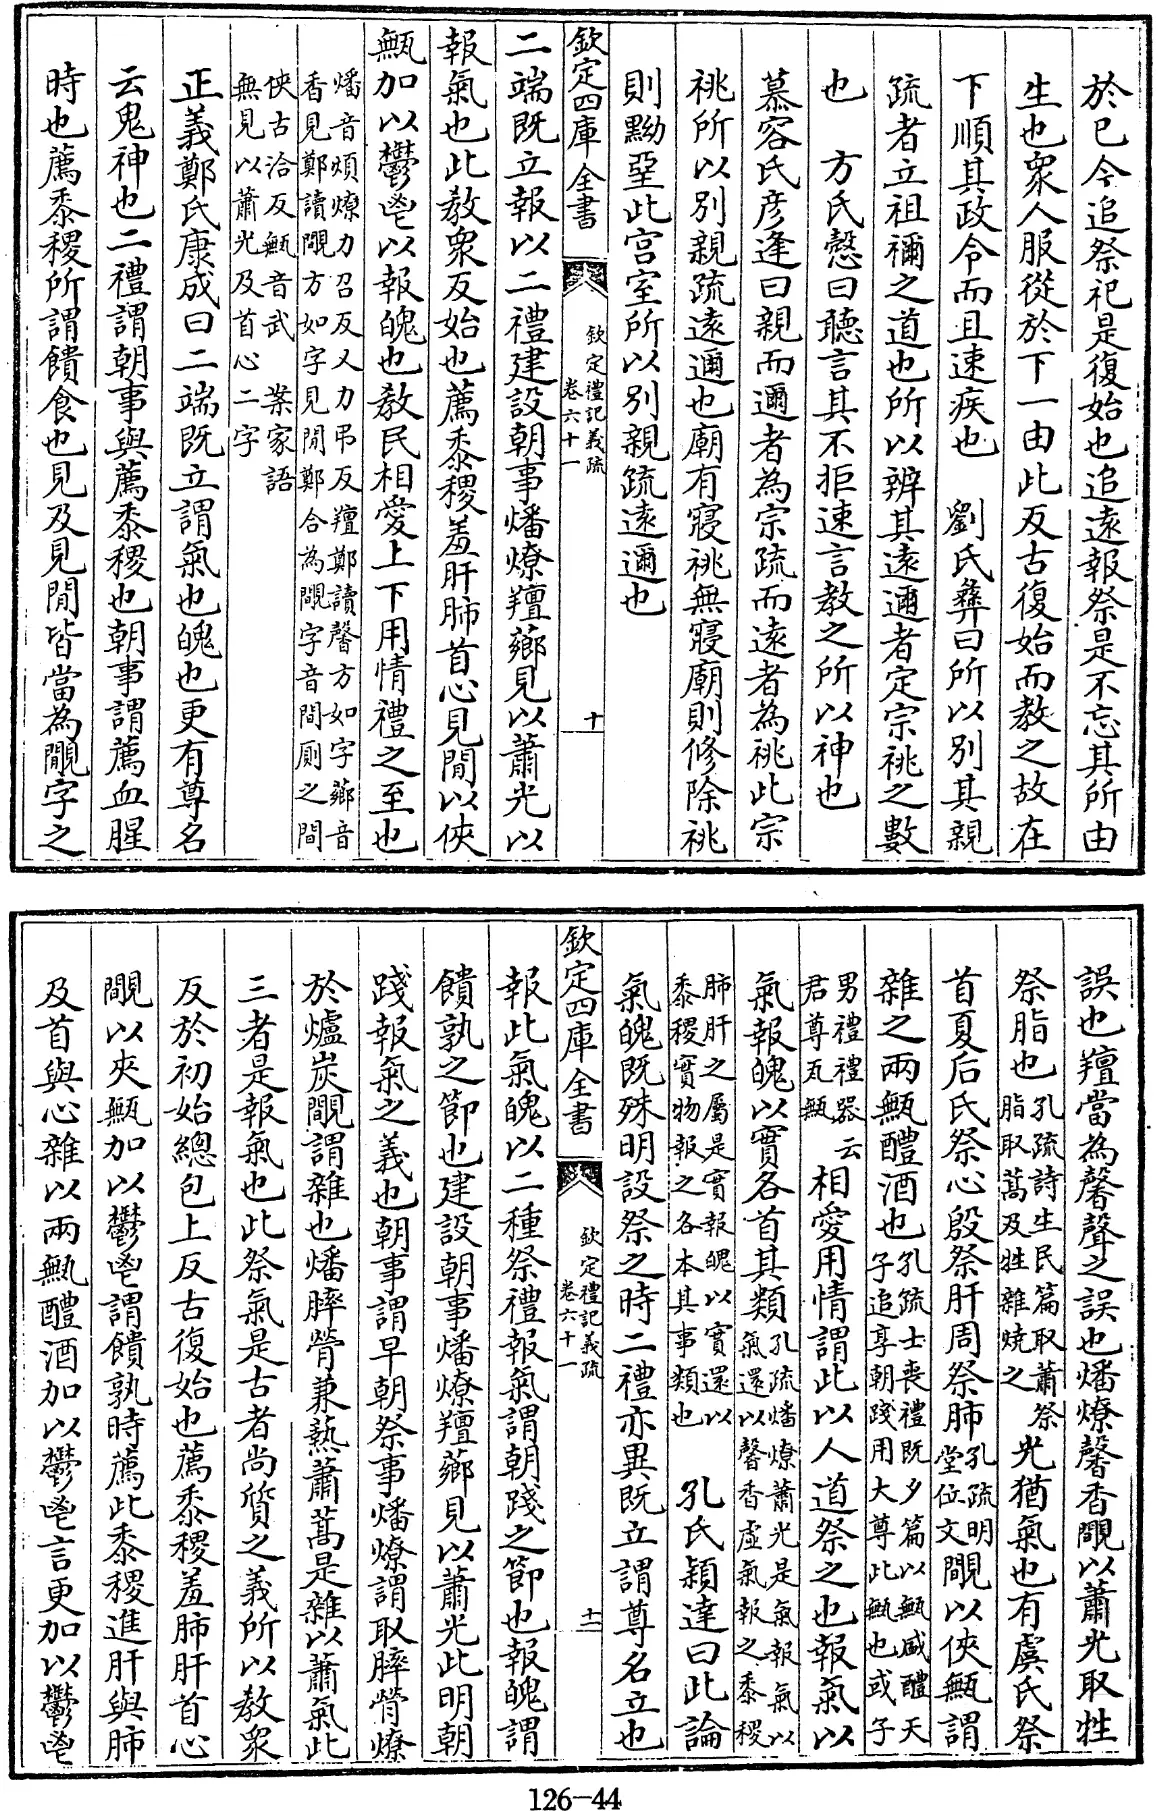 於已今追祭祀是復始也追遠報祭是不忘其所由
生也衆人服從於下一由此反古復始而教之故在
下順其政令而且速疾也　劉氏彝曰所以别其親
疏者立祖禰之道也所以辨其逺邇者定宗祧之數
也　方氏慤曰聽言其不拒速言教之所以神也
慕容氏彦逢曰親而邇者為宗疏而逺者為祧此宗
祧所以别親疏逺邇也廟有寢祧無寢廟則修除祧
則黝堊此宫室所以别親疏逺邇也
欽定四庫全書
欽定禮記義疏
卷六十一
十
二端既立報以二禮建設朝事燔燎羶薌見以蕭光以
報氣也此教衆反始也薦黍稷羞肝肺首心見間以俠
甒加以鬱鬯以報魄也教民相愛上下用情禮之至也
燔音煩燎力召反又力弔反羶鄭讀馨方如字薌音
香見鄭讀覸方如字見間鄭合為覸字音間厠之間
俠古洽反甒音武　案家語
無見以蕭光及首心二字
正義鄭氏康成曰二端既立謂氣也魄也更有尊名
云鬼神也二禮謂朝事與薦黍稷也朝事謂薦血腥
時也薦黍稷所謂饋食也見及見間皆當為覸字之
誤也羶當為馨聲之誤也燔燎馨香覸以蕭光取牲
祭脂也孔疏詩生民篇取蕭祭
脂取蒿及牲雜燒之光猶氣也有虞氏祭
首夏后氏祭心殷祭肝周祭肺孔疏明
堂位文覸以俠甒謂
雜之兩甒醴酒也孔疏士喪禮既夕篇以甒盛醴天
子追享朝踐用大尊此甒也或子
男禮禮器云
君尊瓦甒相愛用情謂此以人道祭之也報氣以
氣報魄以實各首其類孔疏燔燎蕭光是氣報氣以
氣還以馨香虚氣報之黍稷
肺肝之屬是實報魄以實還以
黍稷實物報之各本其事類也　孔氏穎達曰此論
氣魄既殊明設祭之時二禮亦異既立謂尊名立也
欽定四庫全書
欽定禮記義疏
卷六十一
十一
報此氣魄以二種祭禮報氣謂朝踐之節也報魄謂
饋孰之節也建設朝事燔燎羶薌見以蕭光此明朝
踐報氣之義也朝事謂早朝祭事燔燎謂取膟膋燎
於爐炭覸謂雜也燔膟膋兼爇蕭蒿是雜以蕭氣此
三者是報氣也此祭氣是古者尚質之義所以教衆
反於初始總包上反古復始也薦黍稷羞肺肝首心
覸以夾甒加以鬱鬯謂饋孰時薦此黍稷進肝與肺
及首與心雜以兩甒醴酒加以鬱鬯言更加以鬱鬯
126-44